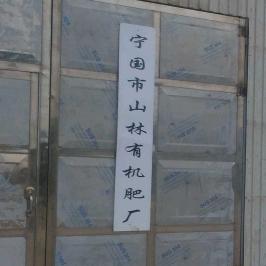 宁国市山林有机肥厂